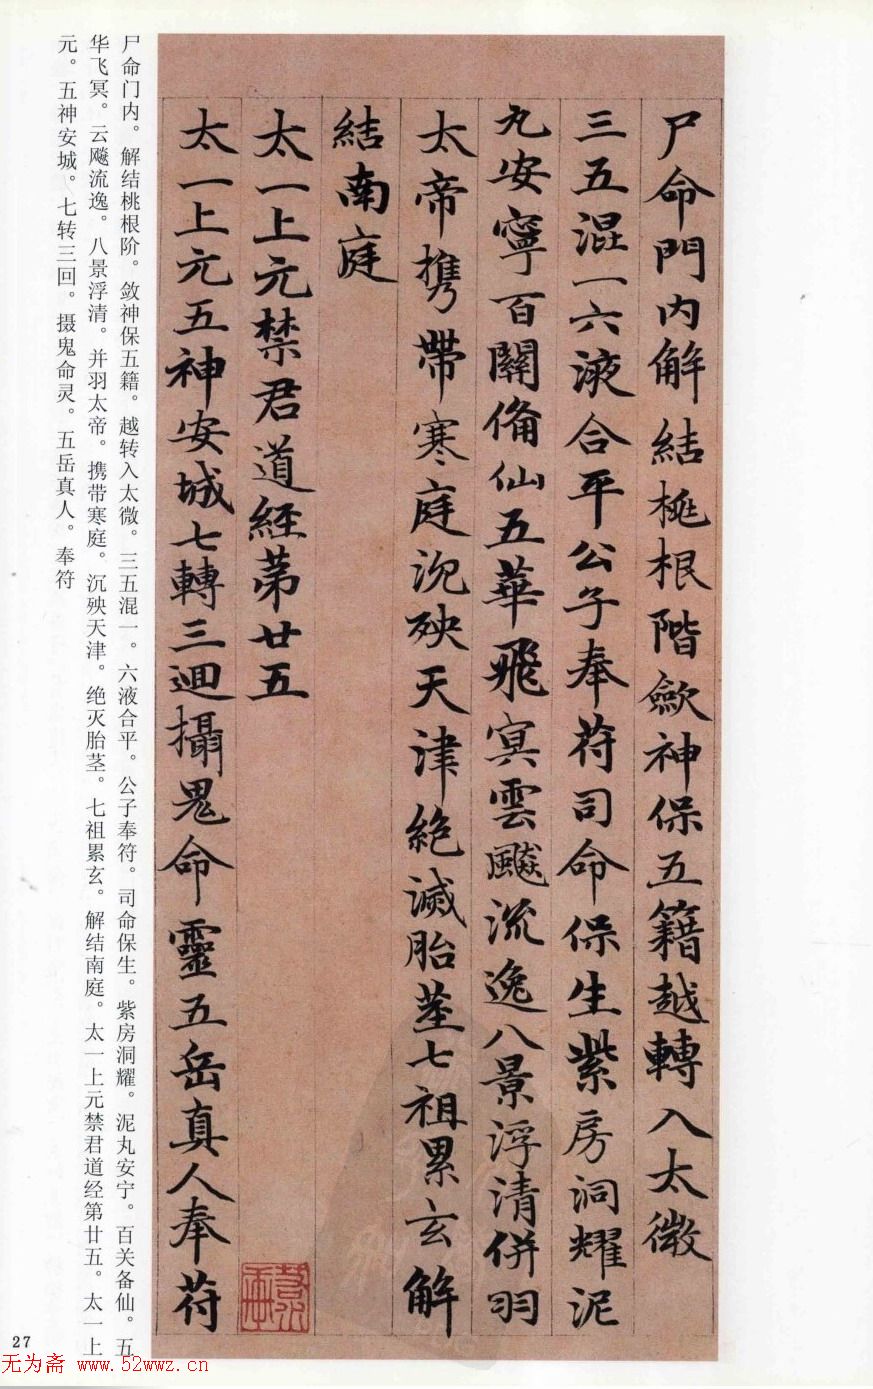 尸命門内解結桃根階歛神保五籍越轉入太微
三五混一六液合平公子奉苻司命保生紫房洞耀泥
丸安寧百關俻仙五華飛冥雲飈流逸八景浮清併羽
太帝携帶寒庭沉殃天津絶滅胎莖七祖累玄解
結南庭
太一上元禁君道經第廿五
太一上元五神安城七轉三迴攝鬼命靈五岳真人奉苻
尸命门内。解结桃根阶。敛神保五籍。越转入太微。三五混一。六液合平。公子奉符。司命保生。紫房洞耀。泥丸安宁。百关备仙。五
华飞冥。云飚流逸。八景浮清。并羽太帝。携带寒庭。沉殃天津。绝灭胎茎。七祖累玄。解结南庭。太一上元禁君道经第廿五。太一上
元。五神安城。七转三回。摄鬼命灵。五岳真人。奉符
27
无为斋 www.52wwz.cn